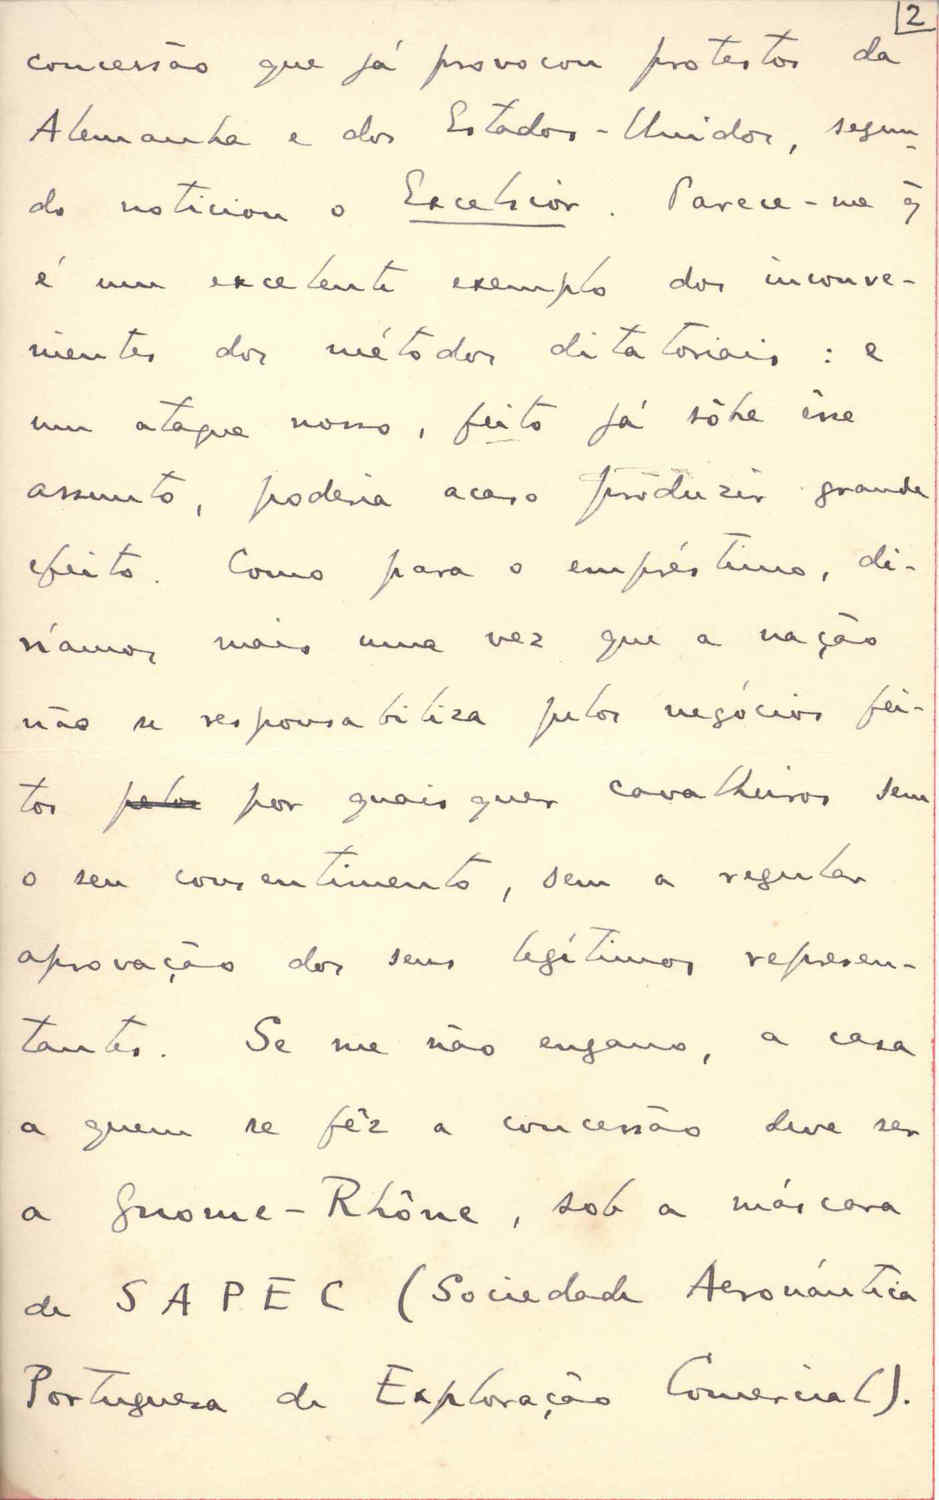 2
concessão que já provocou protestos da
Alemanha e dos Estados-Unidos, segun-
do noticiou o Excelsior. Parece-me q̃
é um excelente exemplo dos inconve-
nientes dos métodos ditatoriais: e
um ataque nosso, feito já sôbe êsse
assunto, poderia acaso produzir grande
efeito. Como para o empréstimo, di-
ríamos mais uma vez que a nação
não se responsabiliza pelos negócios fei-
tos pelos por quaisquer cavalheiros sem
o seu consentimento, sem a regular
aprovação dos seus legítimos represen-
tantes. Se me não engano, a casa
a quem se fêz a concessão deve ser
a Gnome-Rhône, sob a máscara
de SAPEC (Sociedade Aeronáutica
Portuguesa de Exploração Comercial).